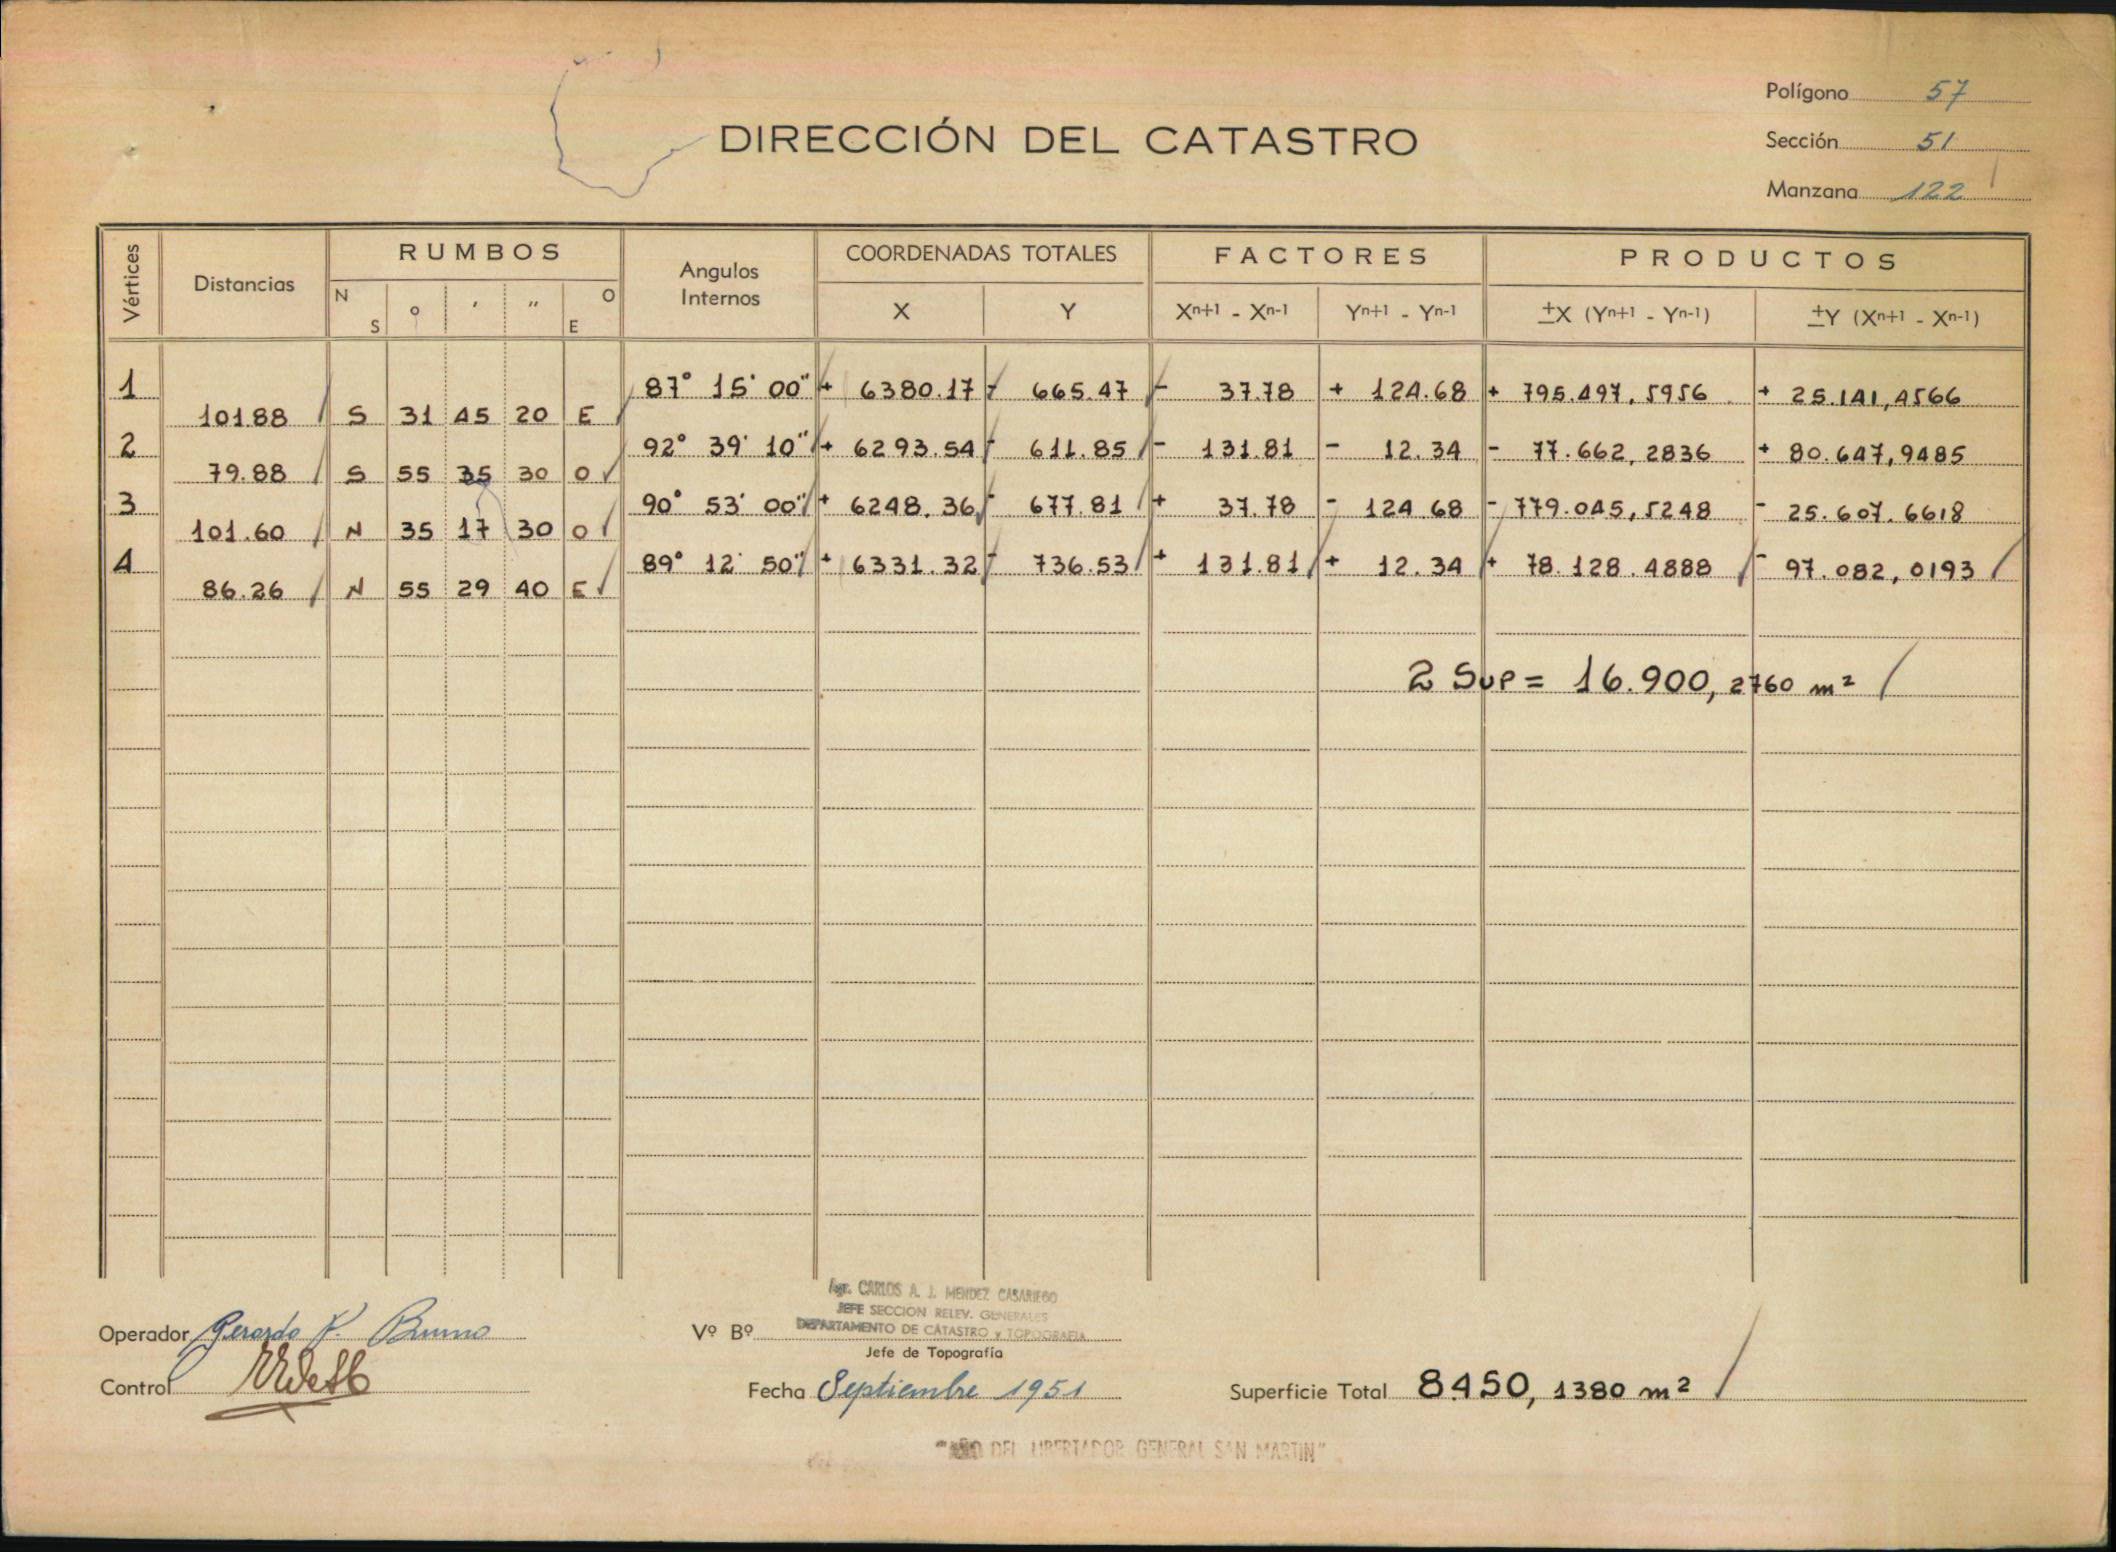 Polígono 57
DIRECCIÓN DEL CATASTRO
Sección 51
Manzana 122
Vértices Distancias RUMBOS Angulos Internos COORDENADAS TOTALES FACTORES PRODUCTOS
N S ° ' " O E X Y Xn+1 - Xn-1 Yn+1 - Yn-1 ±X (Yn+1 - Yn-1) ±Y (Xn+1 - Xn-1)
1 87° 15' 00" + 6380.17 - 665.47 - 37.78 + 124.68 + 795.497,5956 + 25.141,4566
101.88 S 31 45 20 E
2 92° 39' 10" + 6293.54 - 611.85 - 131.81 - 12.34 - 77.662,2836 + 80.647,9485
79.88 S 55 35 30 O
3 90° 53' 00" + 6248.36 - 677.81 + 37.78 - 124.68 - 779.045,5248 - 25.607.6618
101.60 N 35 17 30 O
4 89° 12' 50" + 6331.32 - 736.53 + 131.81 + 12.34 + 78.128.4888 - 97.082,0193
86.26 N 55 29 40 E
2 Sup = 16.900,2760 m²
Agr. CARLOS A. J. MENDEZ CASARIEGO
JEFE SECCION RELEV. GENERALES
DEPARTAMENTO DE CATASTRO y TOPOGRAFIA
Operador Gerardo Bruno Vº Bº
Jefe de Topografía
Control Fecha Septiembre 1951 Superficie Total 8450,1380 m²
"AÑO DEL LIBERTADOR GENERAL SAN MARTIN"